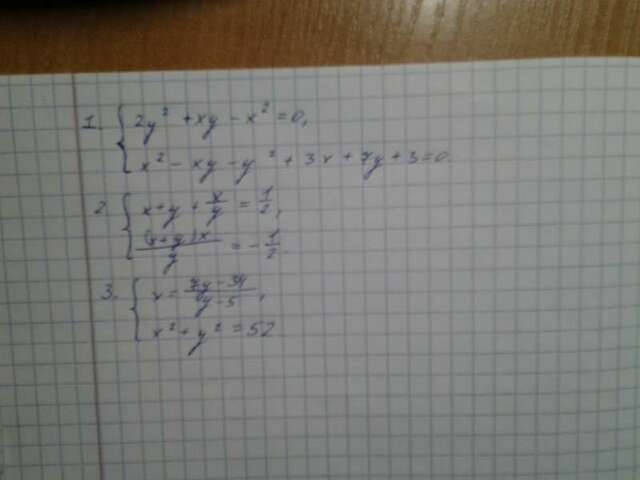 1. { 2y² + xy - x² = 0,
x² - xy - y² + 3x + 7y + 3 = 0.
2. { x + y + x/y = 1/2,
(x+y)x/y = -1/2
3. { x = 7y - 34/y - 5,
x² + y² = 52